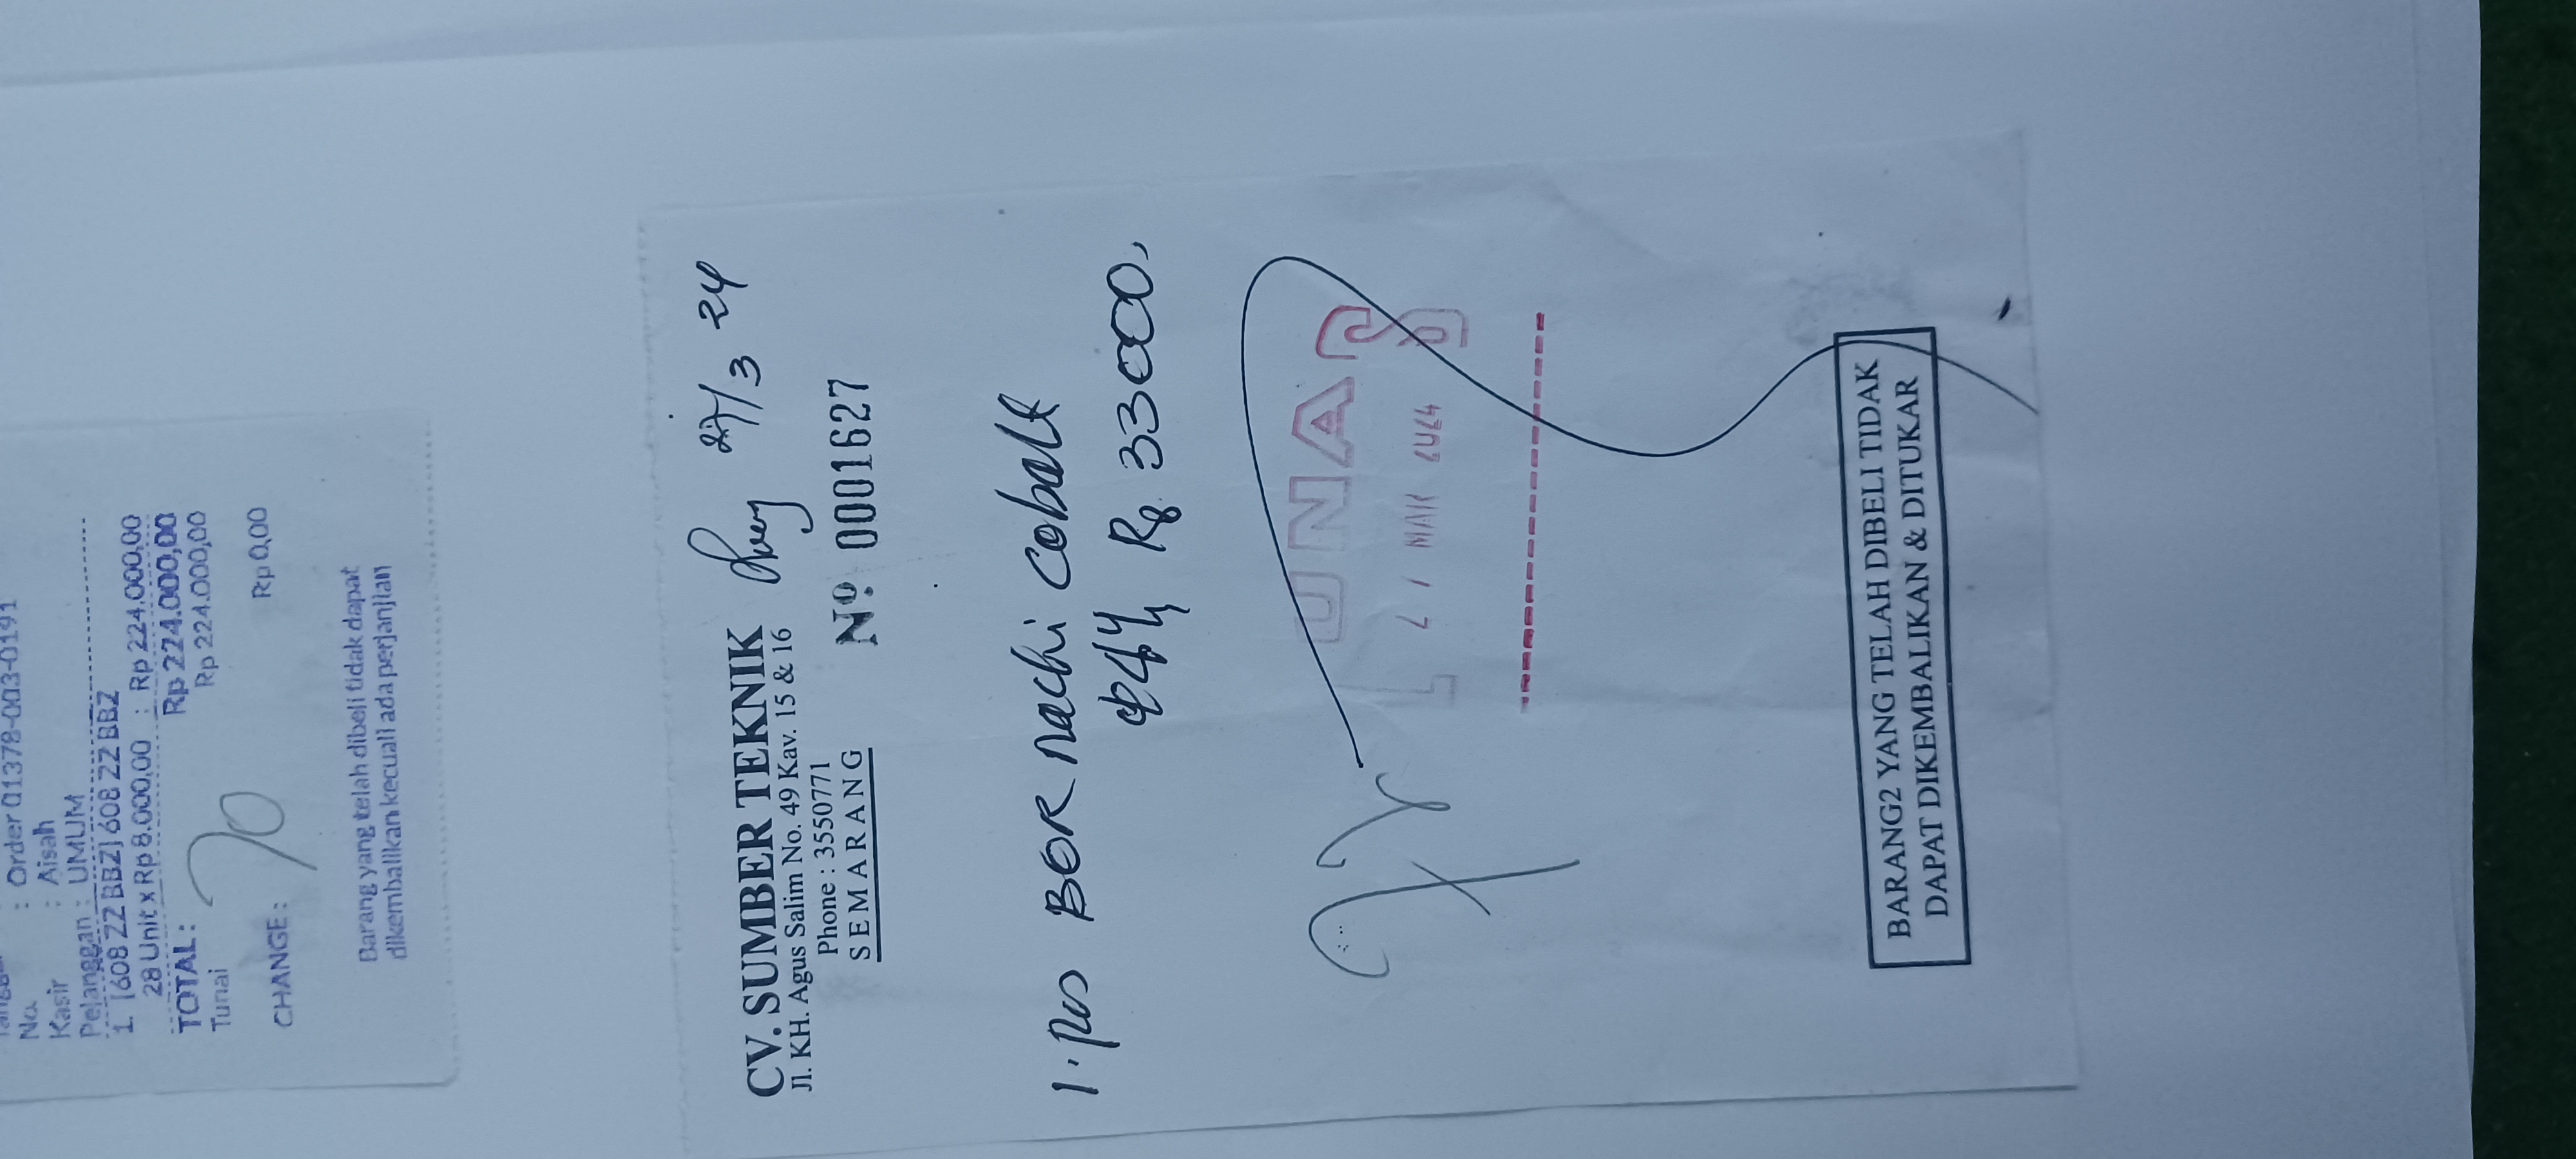 No. : Order 01378-003-0191
Kasir : Aisah
Pelanggan : UMUM
1. [608 ZZ BBZ] 608 ZZ BBZ
28 Unit x Rp 8.000,00 : Rp 224.000,00
TOTAL : Rp 224.000,00
Tunai Rp 224.000,00
CHANGE : Rp 0,00
Barang yang telah dibeli tidak dapat
dikembalikan kecuali ada perjanjian
CV. SUMBER TEKNIK 27/3 24
Jl. KH. Agus Salim No. 49 Kav. 15 & 16
Phone : 3550771
SEMARANG
Nº 0001627
1 pcs BOR nachi cobalt
Rp 33000,
LUNAS
27 MAR 2024
BARANG2 YANG TELAH DIBELI TIDAK
DAPAT DIKEMBALIKAN & DITUKAR